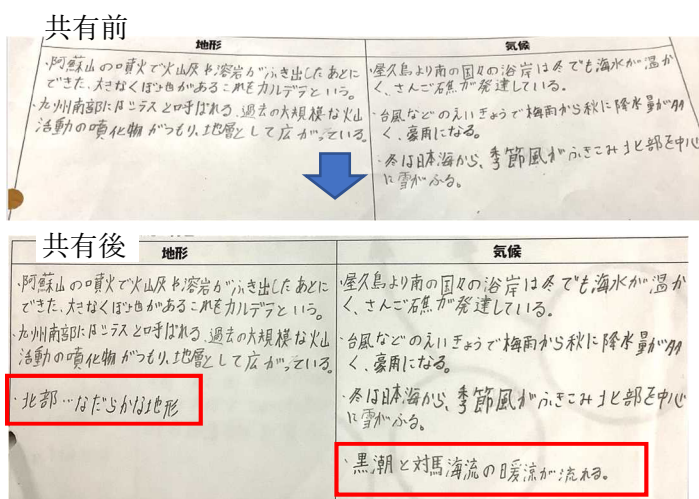 共有前
地形
気候
・阿蘇山の噴火で火山灰や溶岩がふき出したあとに
できた、大きなくぼ地がある これをカルデラという。
・九州南部にはシラスと呼ばれる、過去の大規模な火山
活動の噴化物がつもり、地層として広がっている。
・屋久島より南の国々の沿岸は冬でも海水が温か
く、さんご礁が発達している。
・台風などのえいきょうで梅雨から秋に降水量が多
く、豪雨になる。
・冬は日本海から、季節風がふきこみ北部を中心
に雪がふる。
共有後
地形
気候
・阿蘇山の噴火で火山灰や溶岩がふき出したあとに
できた、大きなくぼ地がある これをカルデラという。
・九州南部にはシラスと呼ばれる、過去の大規模な火山
活動の噴化物がつもり、地層として広がっている。
・北部…なだらかな地形
・屋久島より南の国々の沿岸は冬でも海水が温か
く、さんご礁が発達している。
・台風などのえいきょうで梅雨から秋に降水量が多
く、豪雨になる。
・冬は日本海から、季節風がふきこみ北部を中心
に雪がふる。
・黒潮と対馬海流の暖流が流れる。